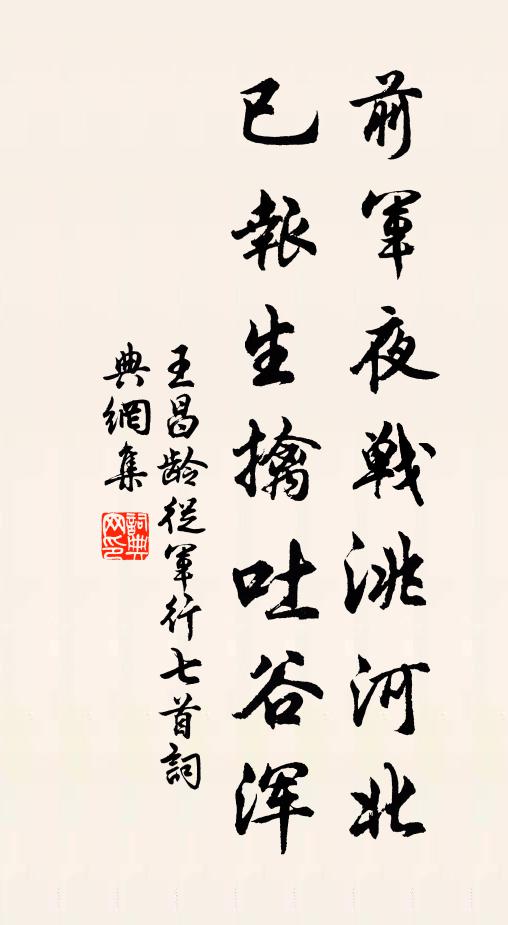 前軍夜戰洮河北
已報生擒吐谷浑
王昌龄從軍行七首詞
典網集
詞典
网印